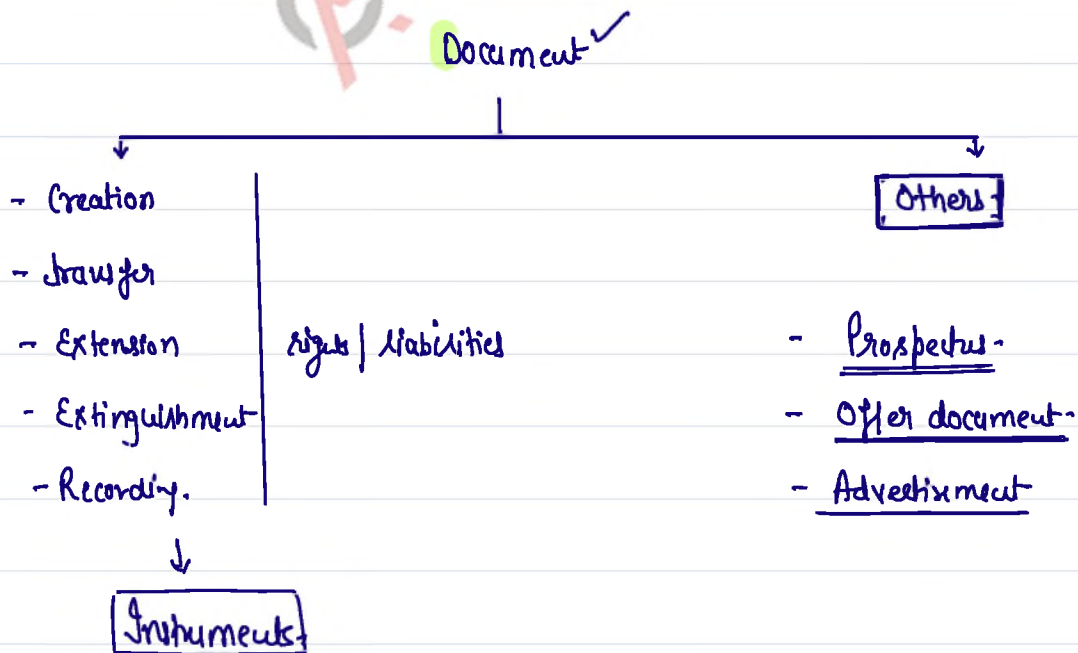 Document ✓
- Creation
- Transfer
- Extension
- Extinguishment
- Recording.
rights | liabilities
Instruments
Others
- Prospectus-
- Offer document-
- Advertisement